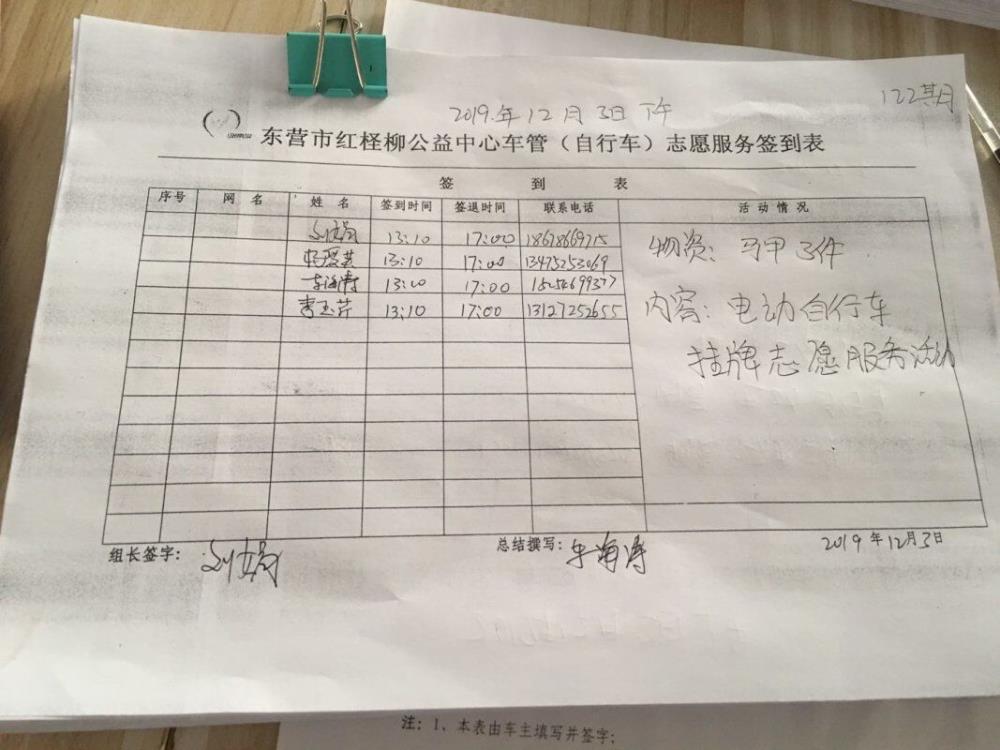 122期
2019.年12月3日下午
东营市红柽柳公益中心车管（自行车）志愿服务签到表
签 到 表
序号 网 名 姓 名 签到时间 签退时间 联系电话 活动情况
13:10 17:00
杨爱英 13:10 17:00 13475253069
13:00 17:00
李玉芹 13:10 17:00 13127252655
物资: 马甲 3件
内容: 电动自行车
挂牌志愿服务活动
组长签字:
总结撰写:
2019年12月3日
注: 1、本表由车主填写并签字;